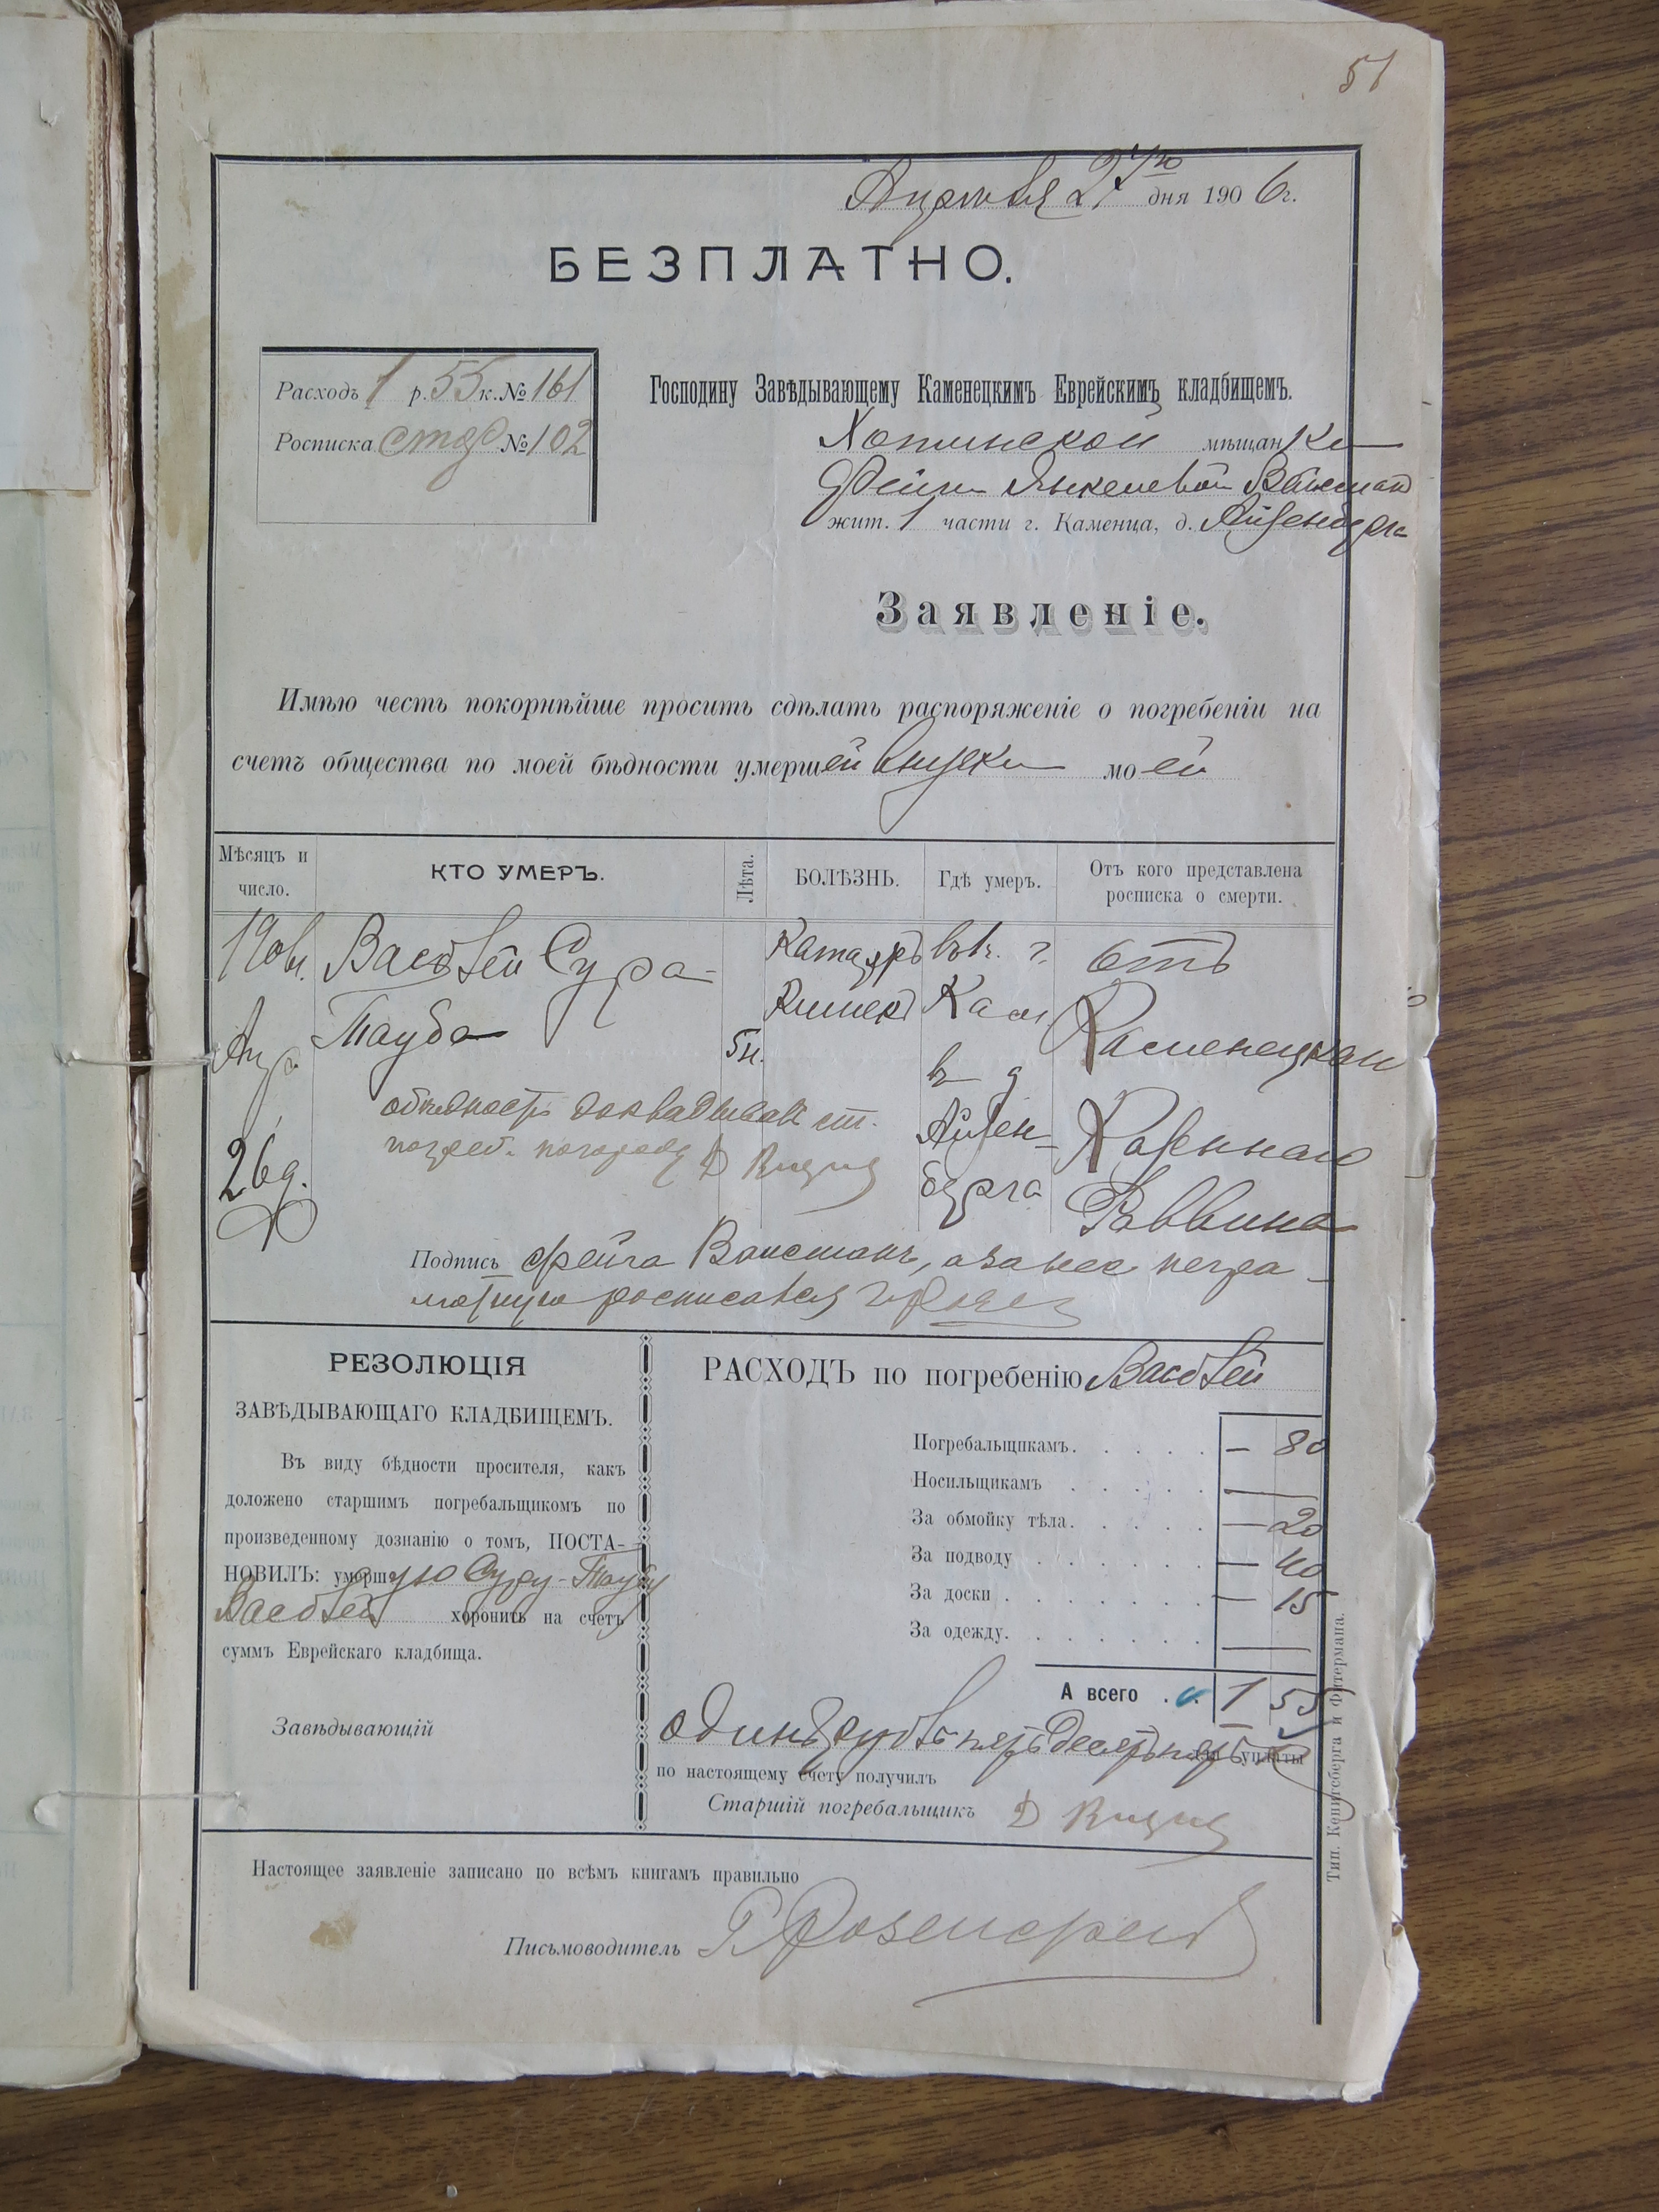 51
Апреля 27го дня 1906 г.
БЕЗПЛАТНО.
Расходъ 1 р. 55 к. № 161
Росписка № 102
Господину Завѣдывающему Каменецкимъ Еврейскимъ кладбищемъ.
Хотинской мѣщанки
Фейги Янкелевой Ваксман
жит. 1 части г. Каменца, д. Айзенберга
Заявленіе.
Имѣю честь покорнѣйше просить сдѣлать распоряженіе о погребеніи на
счетъ общества по моей бѣдности умершей внучки моей
Мѣсяцъ и число.
КТО УМЕРЪ.
Лѣта.
БОЛѢЗНЬ.
Гдѣ умеръ.
Отъ кого представлена росписка о смерти.
Сура
Тауба
5 н.
Катарръ
Кишекъ
въ г.
Кам.
въ д
Айзен-
берга
отъ
Каменецкаго
Казеннаго
Раввина
Апр.
26 д.
Подпись Фейга Ваксманъ, а за нее негра-
мотную росписался
РЕЗОЛЮЦІЯ
ЗАВѢДЫВАЮЩАГО КЛАДБИЩЕМЪ.
Въ виду бѣдности просителя, какъ
доложено старшимъ погребальщикомъ по
произведенному дознанію о томъ, ПОСТА-
НОВИЛЪ: умершую Суру-Таубу
хоронить на счетъ
суммъ Еврейскаго кладбища.
Завѣдывающій
РАСХОДЪ по погребенію
Погребальщикамъ. — 80
Носильщикамъ —
За обмойку тѣла. — 20
За подводу — 40
За доски — 15
За одежду. —
А всего 1 55
одинъ рубль пятьдесятъ пять уплаты
по настоящему счету получилъ
Старшій погребальщикъ
Настоящее заявленіе записано по всѣмъ книгамъ правильно
Письмоводитель
Тип. Кенигсберга и Фитермана.